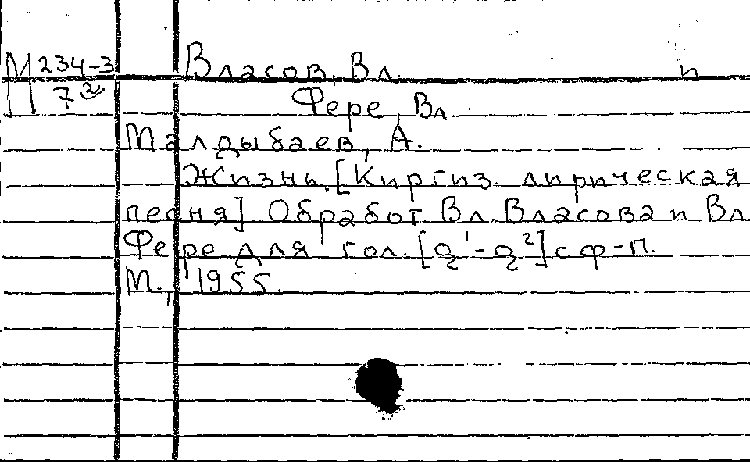 М 234-3 Власов, Вл. п
7
Фере, Вл
Малдыбаев, А.
Жизнь. [Киргиз. лирическая
песня] Обработ. Вл. Власова и Вл
Фере для гол. [  ] с ф-п.
М., 1955.